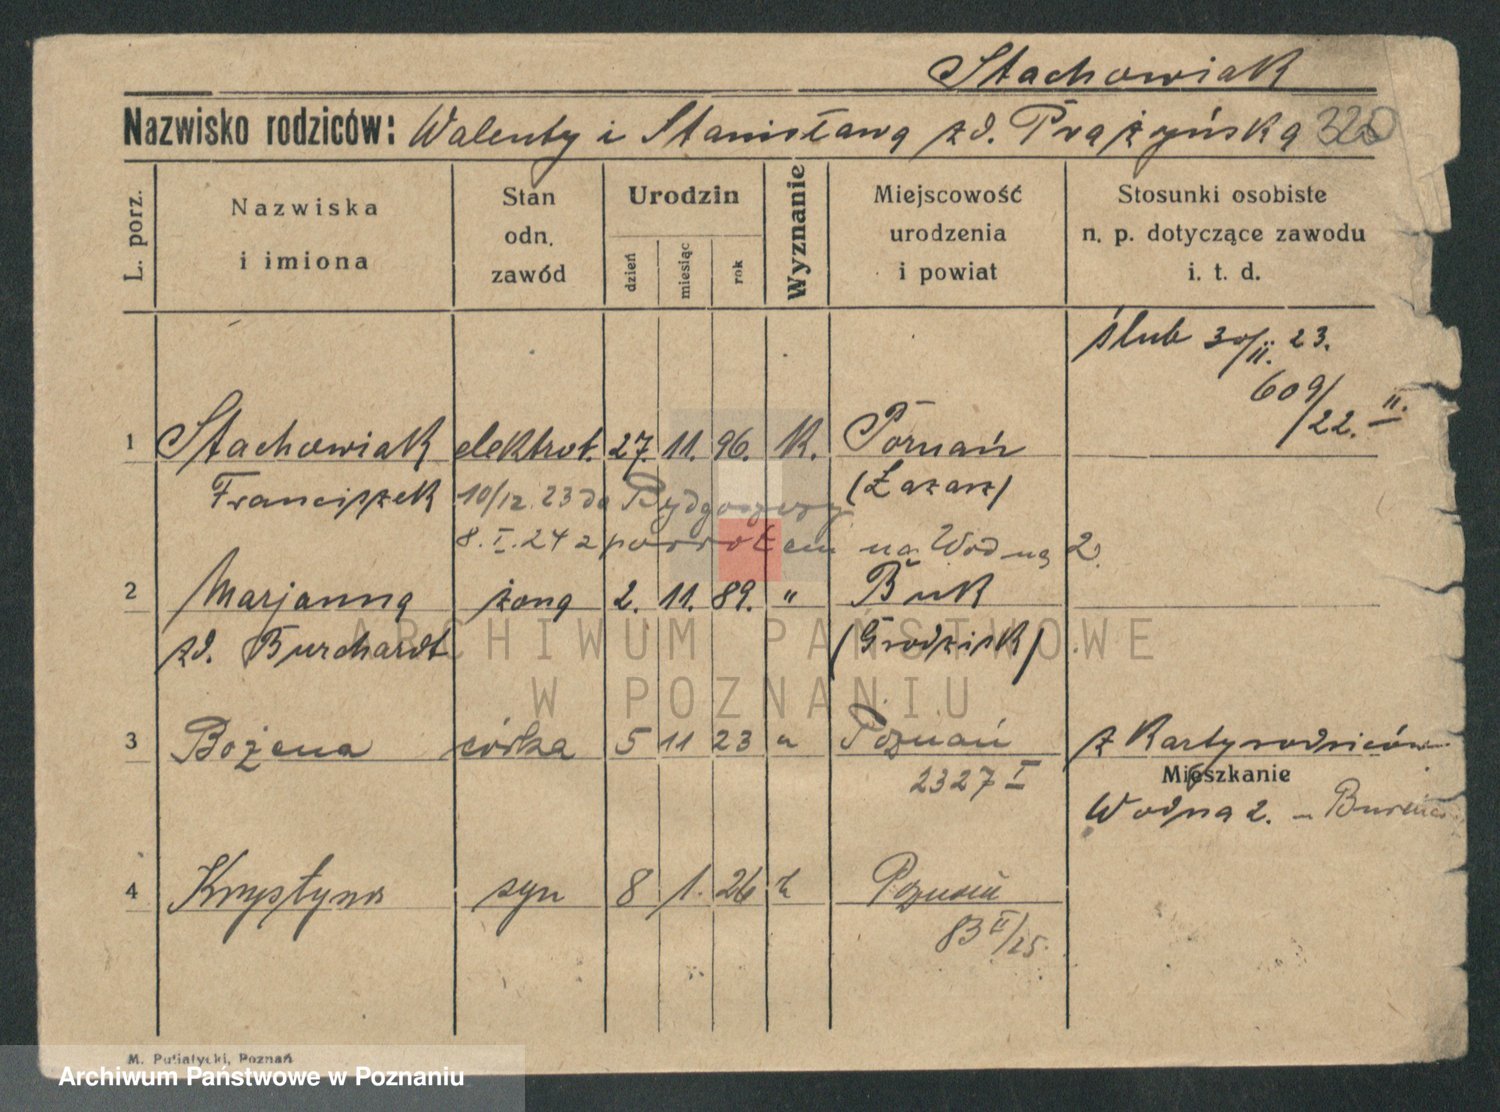 Stachowiak
Nazwisko rodziców: Walenty i Stanisława zd. Prążyńska 320
L. porz.
Nazwiska
i imiona
Stan
odn.
zawód
Urodzin
dzień
miesiąc
rok
Wyznanie
Miejscowość
urodzenia
i powiat
Stosunki osobiste
n. p. dotyczące zawodu
i. t. d.
ślub 30/II. 23.
609/22. II.
1 Stachowiak elektrot. 27. 11. 96. K. Poznań
Franciszek 10/12. 23 do Bydgoszczy (Łazarz)
8. I. 24 z powrotem na Wodną 2.
2 Marjanna żona 2. 11. 89. " Buk
zd. Burchardt (Grodzisk)
3 Bożena córka 5 11 23 " Poznań z Karty rodziców
2327 I
Mieszkanie
Wodna 2. -
4 Krystyna syn 8 1. 26 k Poznań
83 II/25.
M. Putiatycki, Poznań
ARCHIWUM PAŃSTWOWE
W POZNANIU
Archiwum Państwowe w Poznaniu